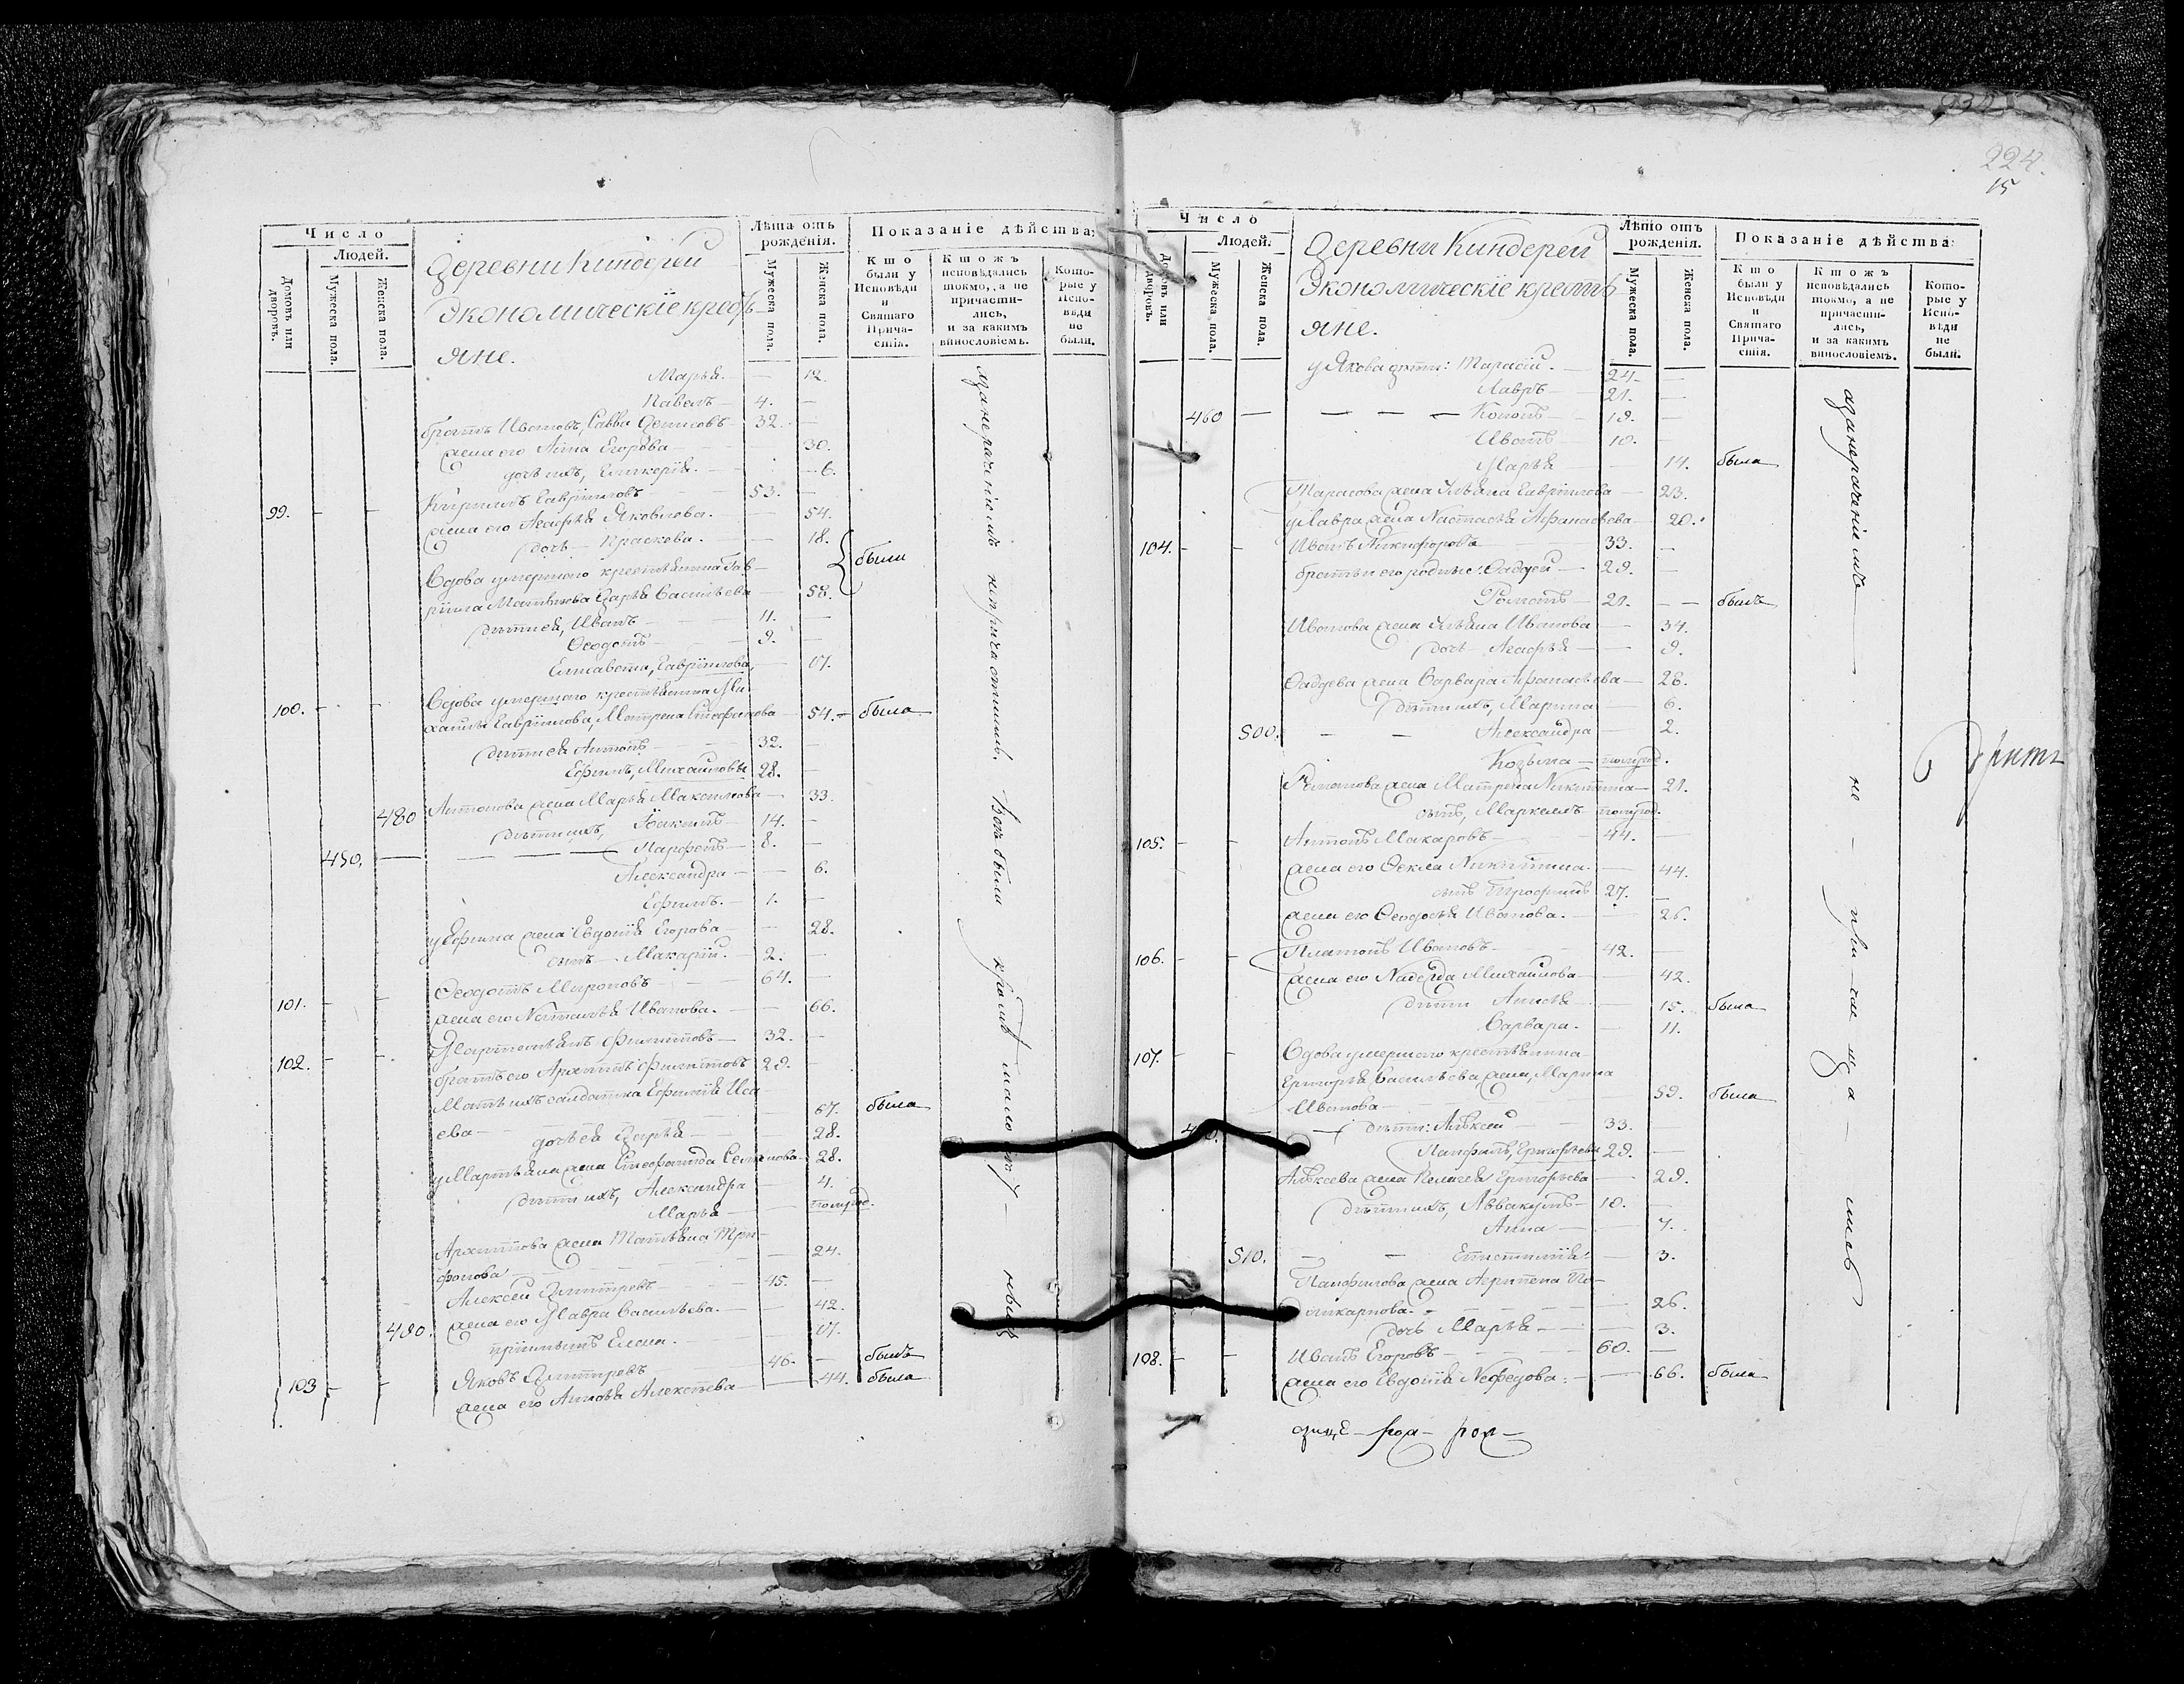 Число
Людей.
Домовъ или дворовъ.
Мужеска пола.
Женска пола.
Деревни Киндерей
Экономическіе кресть-
яне.
Лѣта отъ рожденія.
Мужеска пола.
Женска пола.
Показаніе дѣйства:
Кто были у Исповѣди и Святаго Прича-стія.
Ктожъ исповѣдались токмо, а не причасти-лись, и за какимъ винословіемъ.
Кото-рые у Испо-вѣди не были.
Марья. — 12.
Павелъ — 4. —
братъ Ивановъ, Савва Денисовъ — 32. —
жена его Анна Егорова — 30.
дочь ихъ, Гликерія. — 6.
99. Кирилъ Гавриловъ — 53. —
жена его Агафья Яковлева. — 54.
дочь — Праскева. — 18.
Вдова умершаго крестьянина Гав-
рила Матвѣева Дарья Васильева — 58. были
дѣти ея, Иванъ — 11. —
Ѳеодотъ — 9. —
Елисавета, Гаврилова, — 17.
100. Вдова умершаго крестьянина Ми-
хаила Гаврилова, Матрена Стефанова — 54. — была
дѣти ея Антонъ — 32. —
Ефимъ, Михайловы 28. —
480 Антонова жена Марья Максимова — 33.
дѣти ихъ, Іакимъ — 14. —
450. — Парфенъ — 8. —
Александра — 6.
Ефимъ. — 1. —
у Ефима жена Евдокія Егорова — 28.
сынъ — Макарій. — 2. —
101. Ѳеодотъ Мироновъ — 64. —
жена его Наталья Иванова. — 66.
102. Мартемьянъ Филиповъ — 32. —
братъ его Архипъ Филиповъ 29. —
Мать ихъ салдатка Ефимія Иса-
ева — 67. была
дочь ея Дарья — 28.
у Мартьяна жена Стефанида Семенова — 28.
дѣти ихъ, Александра — 4.
Марья — полгод.
Архипова жена Татьяна Три-
фонова — 24.
Алексей Дмитревъ — 45. —
490. жена его Мавра Васильева. — 42.
приимышъ Елена. — 17.
103 Яковъ Дмитревъ 46. — былъ
жена его Аннова Алексѣева — 44. была
за нераченіемъ не причастились. Всѣ были кромѣ
224.
15
Число
Людей.
Домовъ или дворовъ.
Мужеска пола.
Женска пола.
Деревни Киндерей
Экономическіе кресть-
яне.
Лѣто отъ рожденія.
Мужеска пола.
Женска пола.
Показаніе дѣйства:
Кто были у Исповѣди и Святаго Прича-стія.
Ктожъ исповѣдались токмо, а не причасти-лись, и за какимъ винословіемъ.
Кото-рые у Испо-вѣди не были.
у Якова дѣти: Тарасій. — 24. —
Лавръ — 21. —
460 — Кононъ — 19. —
Иванъ — 10. —
Марья — 14. была
Тарасова жена Ульяна Гаврилова — 23.
у Лавра жена Настасья Афанасьева — 20.
104. Иванъ Никифоровъ 33. —
братьи его родные: Фаддей — 29. —
Романъ — 21. — былъ
Иванова жена Ульяна Иванова — 34.
дочь — Агафья — 9.
Фаддева жена Варвара Афанасьева — 28.
дѣти ихъ, Марина — 6.
500. — Александра — 2.
Козьма — полгод.
Романова жена Матрена Никитина — 21.
сынъ, Маркелъ — полгод.
105. Антонъ Макаровъ — 44.
жена его Ѳекла Никитина. — 44.
сынъ Трофимъ 27. —
жена его Ѳеодосья Иванова. — 26.
106. Платонъ Ивановъ — 42. —
жена его Надежда Михайлова — 42.
дѣти Анисья — 15. была
Варвара. — 11.
107. Вдова умершаго крестьянина
Григорья Васильева жена, Марина
Иванова — 59. была
дѣти: Алѣксей — 33.
Панфилъ, Григорьевы 29. —
Алѣксева жена Пелагея Григорьева — 29.
дѣти ихъ, Аввакумъ — 10. —
Анна — 7.
510. — Епистимія — 3.
Панфилова жена Агрипена По-
ликарпова. — 26.
дочь Марья — 3.
108. Иванъ Егоровъ — 60. —
жена его Евдокія Нефедова: — 66. была
за нераченіемъ — не — при — ча — ща — лись